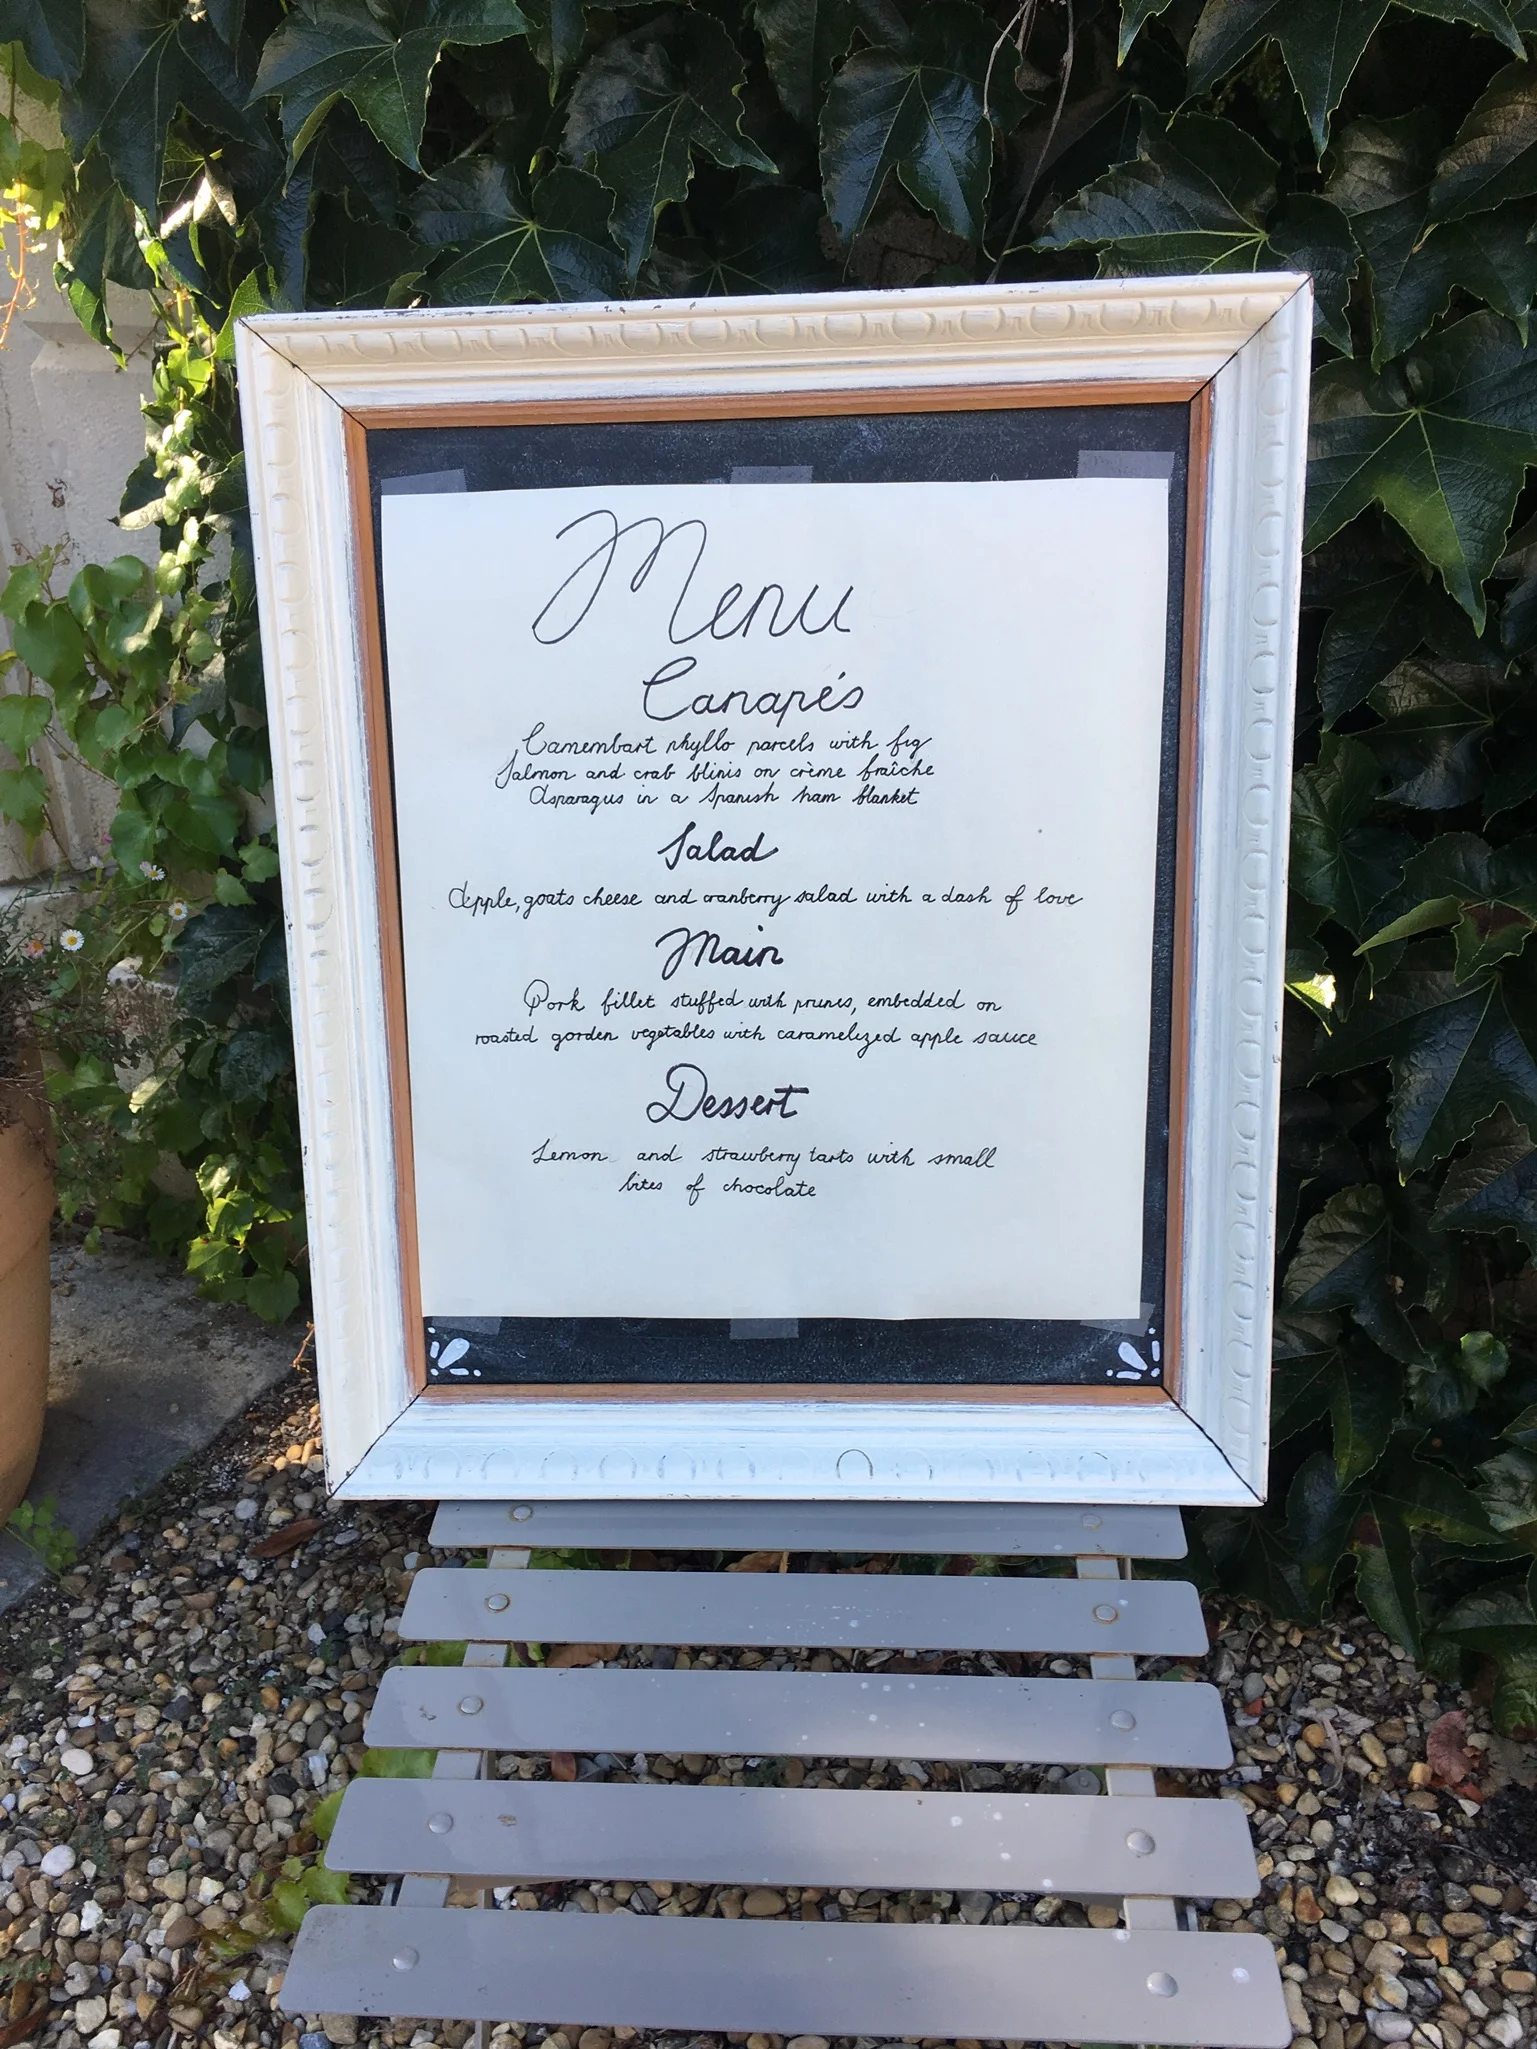 Menu
Canapés
Camembart phyllo parcels with fig
Salmon and crab blinis on crème fraîche
Asparagus in a Spanish ham blanket
Salad
Apple, goats cheese and cranberry salad with a dash of love
Main
Pork fillet stuffed with prunes, embedded on
roasted gorden vegetables with caramelized apple sauce
Dessert
Lemon and strawberry tarts with small
bites of chocolate